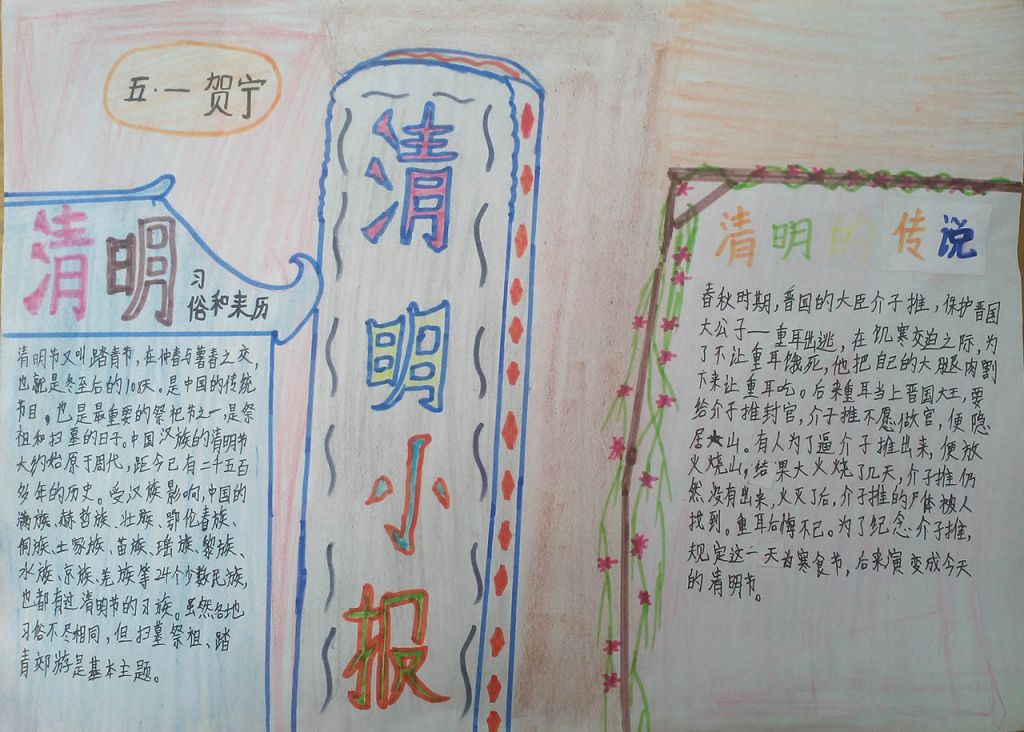 五·一 贺宁
清明
习
俗和来历
清明节又叫踏青节,在仲春与暮春之交,
也就是冬至后的108天。是中国的传统
节日。也是最重要的祭祀节之一,是祭
祖和扫墓的日子。中国汉族的清明节
大约始原于周代,距今已有二千五百
多年的历史。受汉族影响,中国的
满族、赫哲族、壮族、鄂伦春族、
侗族、土家族、苗族、瑶族、黎族、
水族、京族、羌族等24个少数民族,
也都有过清明节的习族。虽然各地
习俗不尽相同,但扫墓祭祖、踏
青郊游是基本主题。
清
明
小
报
清明的传说
春秋时期,晋国的大臣介子推,保护晋国
大公子一重耳出逃,在饥寒交迫之际,为
了不让重耳饿死,他把自己的大腿肉割
下来让重耳吃。后来重耳当上晋国大王,要
给介子推封官,介子推不愿做官,便隐
居山。有人为了逼介子推出来,便放
火烧山,结果大火烧了几天,介子推仍
然没有出来,火灭了后,介子推的尸体被人
找到。重耳后悔不已。为了纪念介子推,
规定这一天为寒食节,后来演变成今天
的清明节。